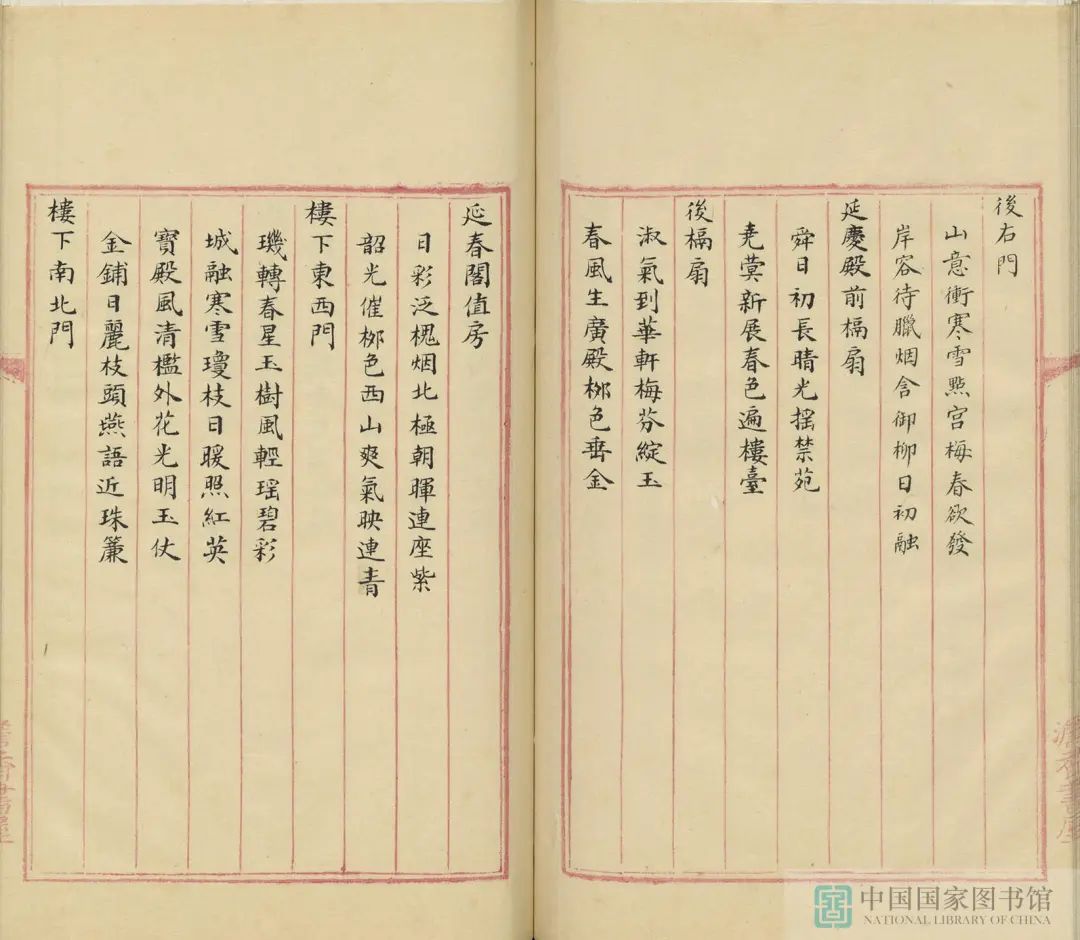 後右門
山意衝寒雪點宮梅春欲發
岸容待臘烟含御柳日初融
延慶殿前槅扇
舜日初長晴光搖禁苑
堯蓂新展春色遍樓臺
後槅扇
淑氣到華軒梅芬綻玉
春風生廣殿桞色垂金
延春閣值房
日彩泛槐烟北極朝暉連座紫
韶光催桞色西山爽氣映連青
樓下東西門
璣轉春星玉樹風輕瑶碧彩
城融寒雪瓊枝日暖照紅英
寶殿風清檻外花光明玉仗
金鋪日麗枝頭燕語近珠簾
樓下南北門
中国国家图书馆
NATIONAL LIBRARY OF CHINA